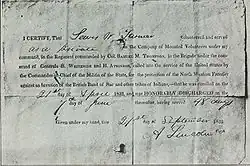 I CERTIFY, That Volunteered and served
as a private in the Company of Mounted Volunteers under my
command, in the Regiment commanded by Col. SAMUEL M. THOMPSON, in the Brigade under the com-
mand of Generals S. WHITESIDE and H. ATKINSON, called into the service of the United States by
the Commander in Chief of the Militia of the State, for the protection of the North Western Frontier
against an Invasion of the British Band of Sac and other tribes of Indians,—that he was enrolled on the
21st day of April 1832, and was HONORABLY DISCHARGED on the
7th day of June thereafter, having served 48 days
Given under my hand, this 21st day of September 1832.
A Lincoln